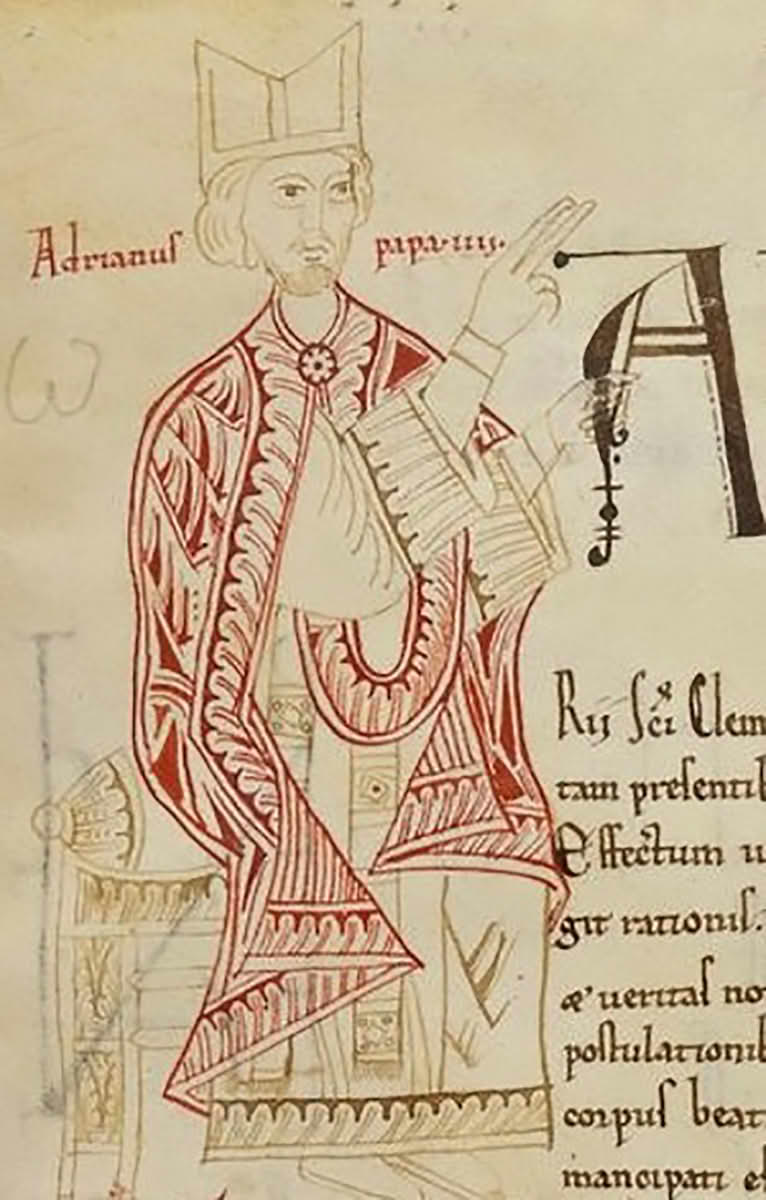 Adrianus papa·iiij·
A
Rij sci Clem
tam presentib
Effectum u
git rationis.
æ ueritas no
postulationib
corpus beat
mancipari e